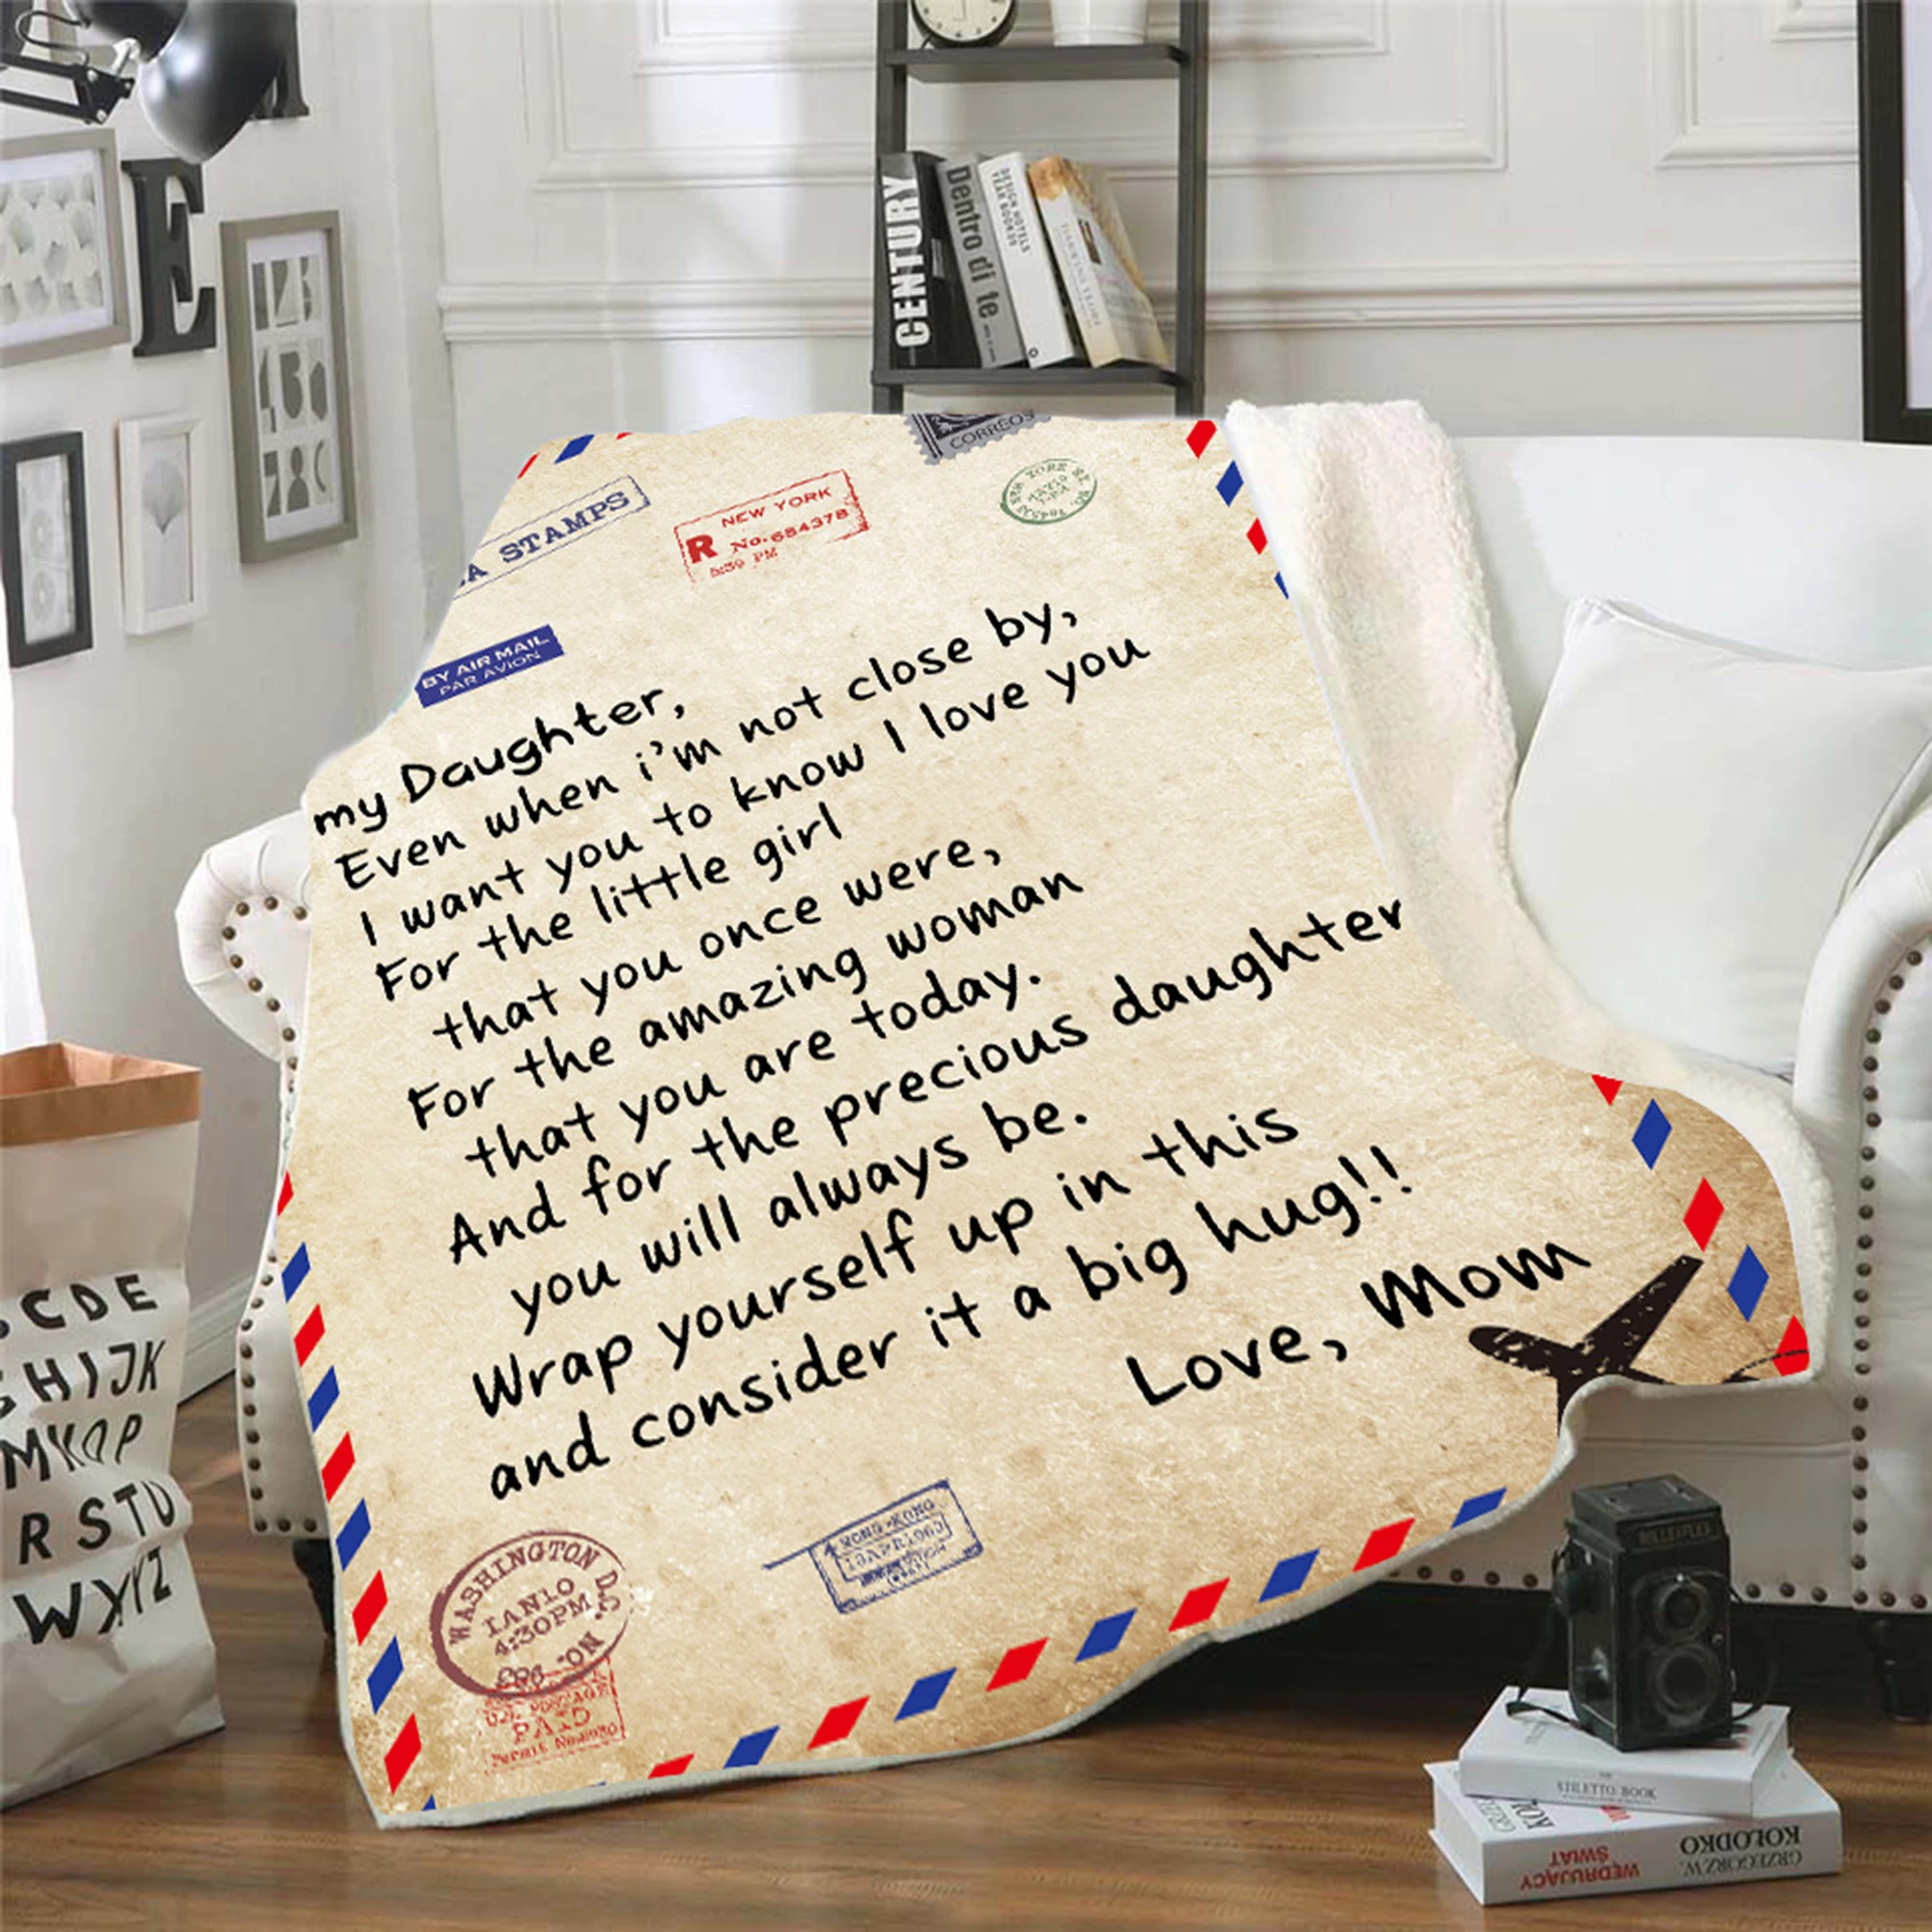 E
CENTURY
Dentro di te
DESIGN HOTELS
YEAR BOOK
CORREOS
A STAMPS
NEW YORK
R No.684378
5:39 PM
BY AIR MAIL
PAR AVION
my Daughter,
Even when i'm not close by,
I want you to know I love you
For the little girl
that you once were,
For the amazing woman
that you are today.
And for the precious daughter
you will always be.
Wrap yourself up in this
and consider it a big hug!!
Love, Mom
CDE
GHIJK
MNOP
RSTU
WXYZ
WASHINGTON D.C.
IAN10
4:30PM
HONG-KONG
13APR1960
PAID
ROLLEIFLEX
STILETTO BOOK
GRZEGORZ W.
KOŁODKO
WĘDRUJĄCY
ŚWIAT